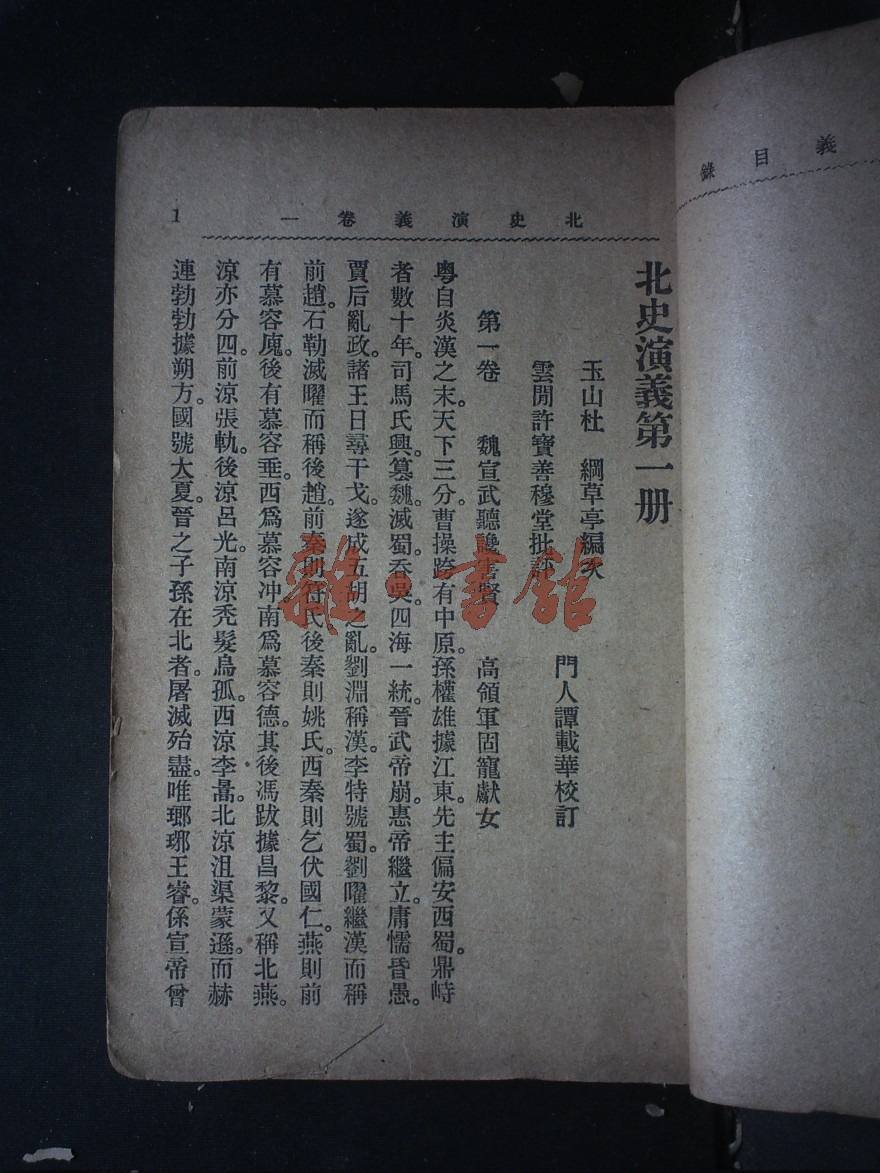 義目錄
北史演義卷一
1
北史演義第一册
玉山杜　綱草亭編次
雲間許寶善穆堂批評
門人譚載華校訂
第一卷　魏宣武聽讒害賢　高領軍固寵獻女
粵自炎漢之末。天下三分。曹操跨有中原。孫權雄據江東。先主偏安西蜀。鼎峙
者數十年。司馬氏興。篡魏。滅蜀。吞吳。四海一統。晉武帝崩。惠帝繼立。庸懦昏愚。
賈后亂政。諸王日尋干戈。遂成五胡之亂。劉淵稱漢。李特號蜀。劉曜繼漢而稱
前趙。石勒滅曜而稱後趙。前秦則苻氏。後秦則姚氏。西秦則乞伏國仁。燕則前
有慕容廆。後有慕容垂。西爲慕容冲。南爲慕容德。其後馮跋據昌黎。又稱北燕。
涼亦分四。前涼張軌。後涼呂光。南涼禿髮烏孤。西涼李暠。北涼沮渠蒙遜。而赫
連勃勃據朔方。國號大夏。晉之子孫在北者。屠滅殆盡。唯瑯琊王睿。係宣帝曾
雜·書館